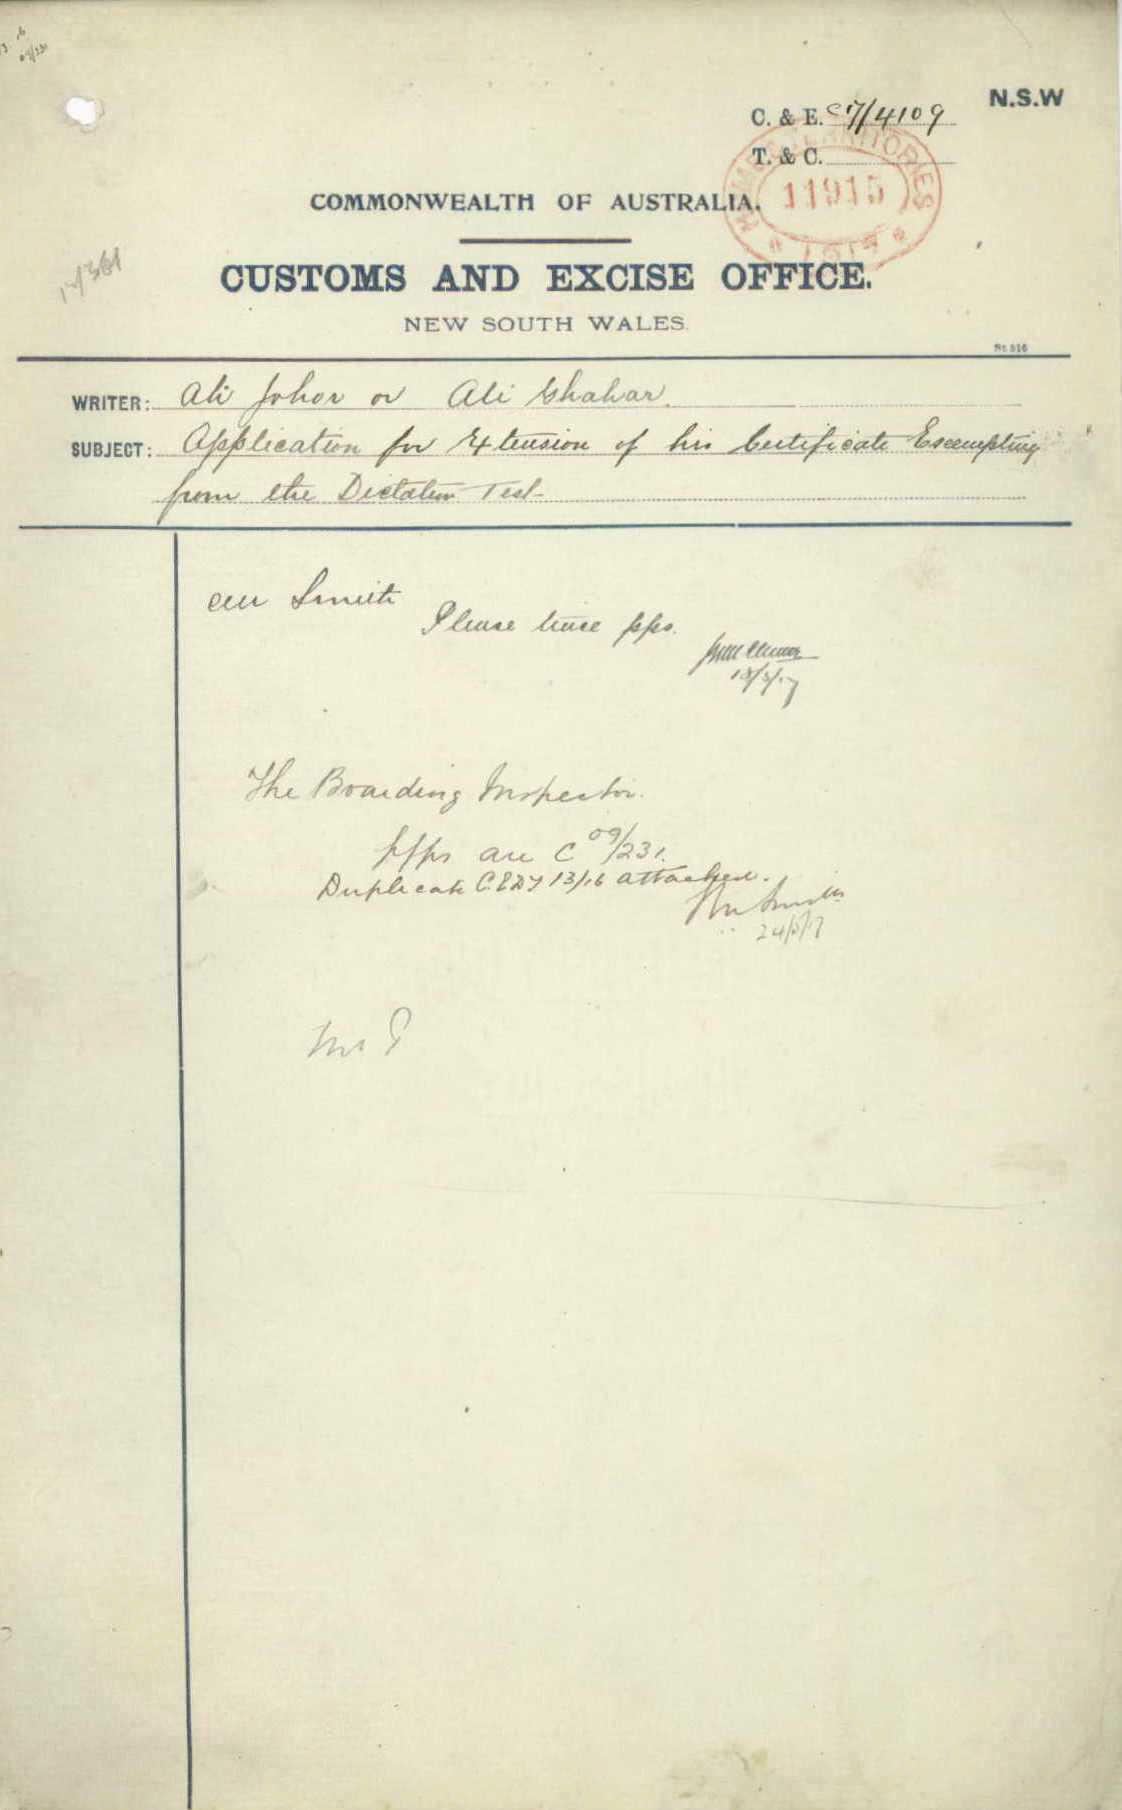 09/231
N.S.W
C. & E. C 17/4109
T. & C.
HOME & TERRITORIES
11915
1917
COMMONWEALTH OF AUSTRALIA.
CUSTOMS AND EXCISE OFFICE.
NEW SOUTH WALES.
St. 516
WRITER: Ali Johor or Ali Shahar.
SUBJECT: Application for Extension of his Certificate Exempting
from the Dictation Test
Mr Smith
Please trace pps.
18/5/17
The Boarding Inspector.
ppps are C 09/231.
Duplicate C.E.D.T 13/16 attached.
24/5/17